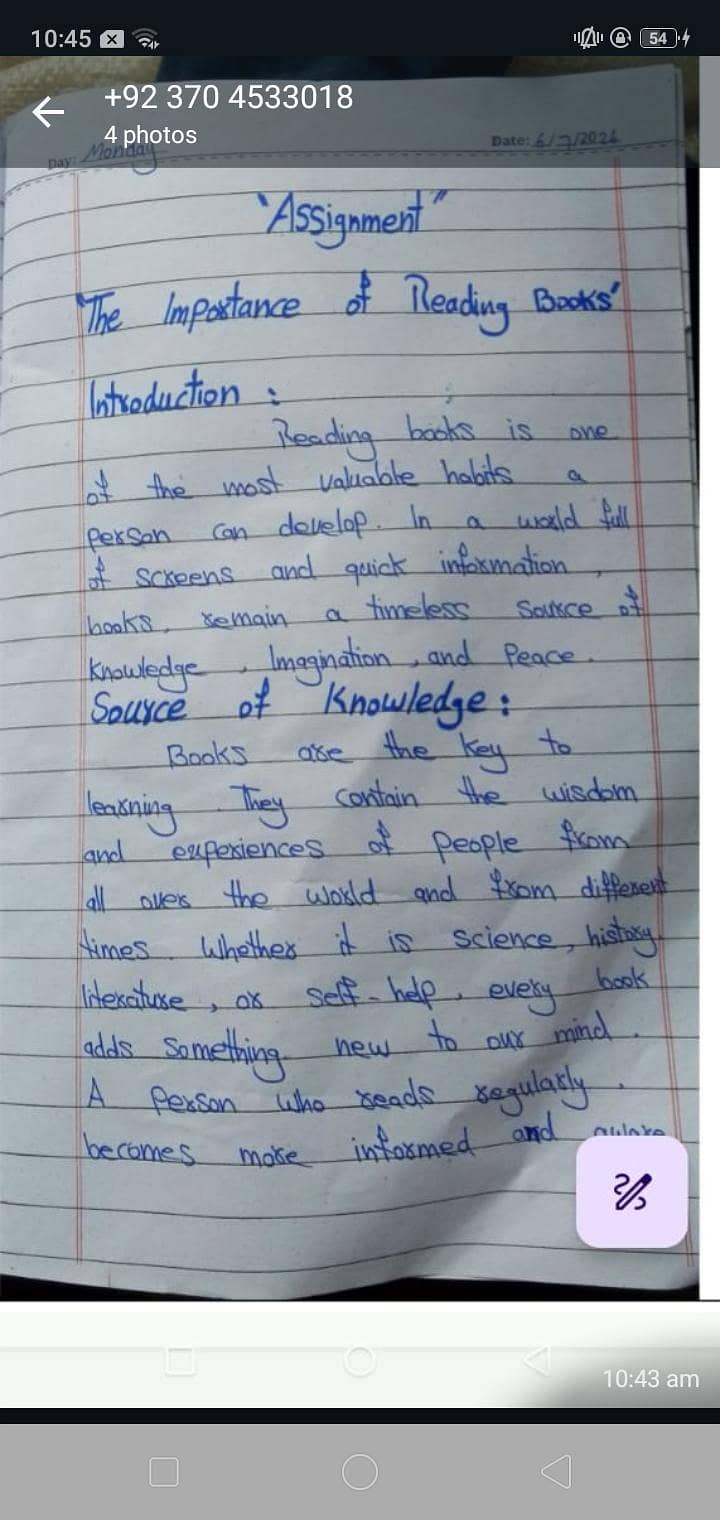 10:45
54
+92 370 4533018
4 photos
Day: Monday
Date: 6/7/2026
"Assignment"
"The Importance of Reading Books"
Introduction :
Reading books is one
of the most valuable habits a
person can develop. In a world full
of screens and quick information ,
books remain a timeless source of
knowledge , Imagination , and Peace .
Source of Knowledge :
Books are the key to
learning . They contain the wisdom
and experiences of people from
all over the world and from different
times . Whether it is science, history,
literature , or self-help , every book
adds something new to our mind .
A person who reads regularly .
becomes more informed and aware
10:43 am